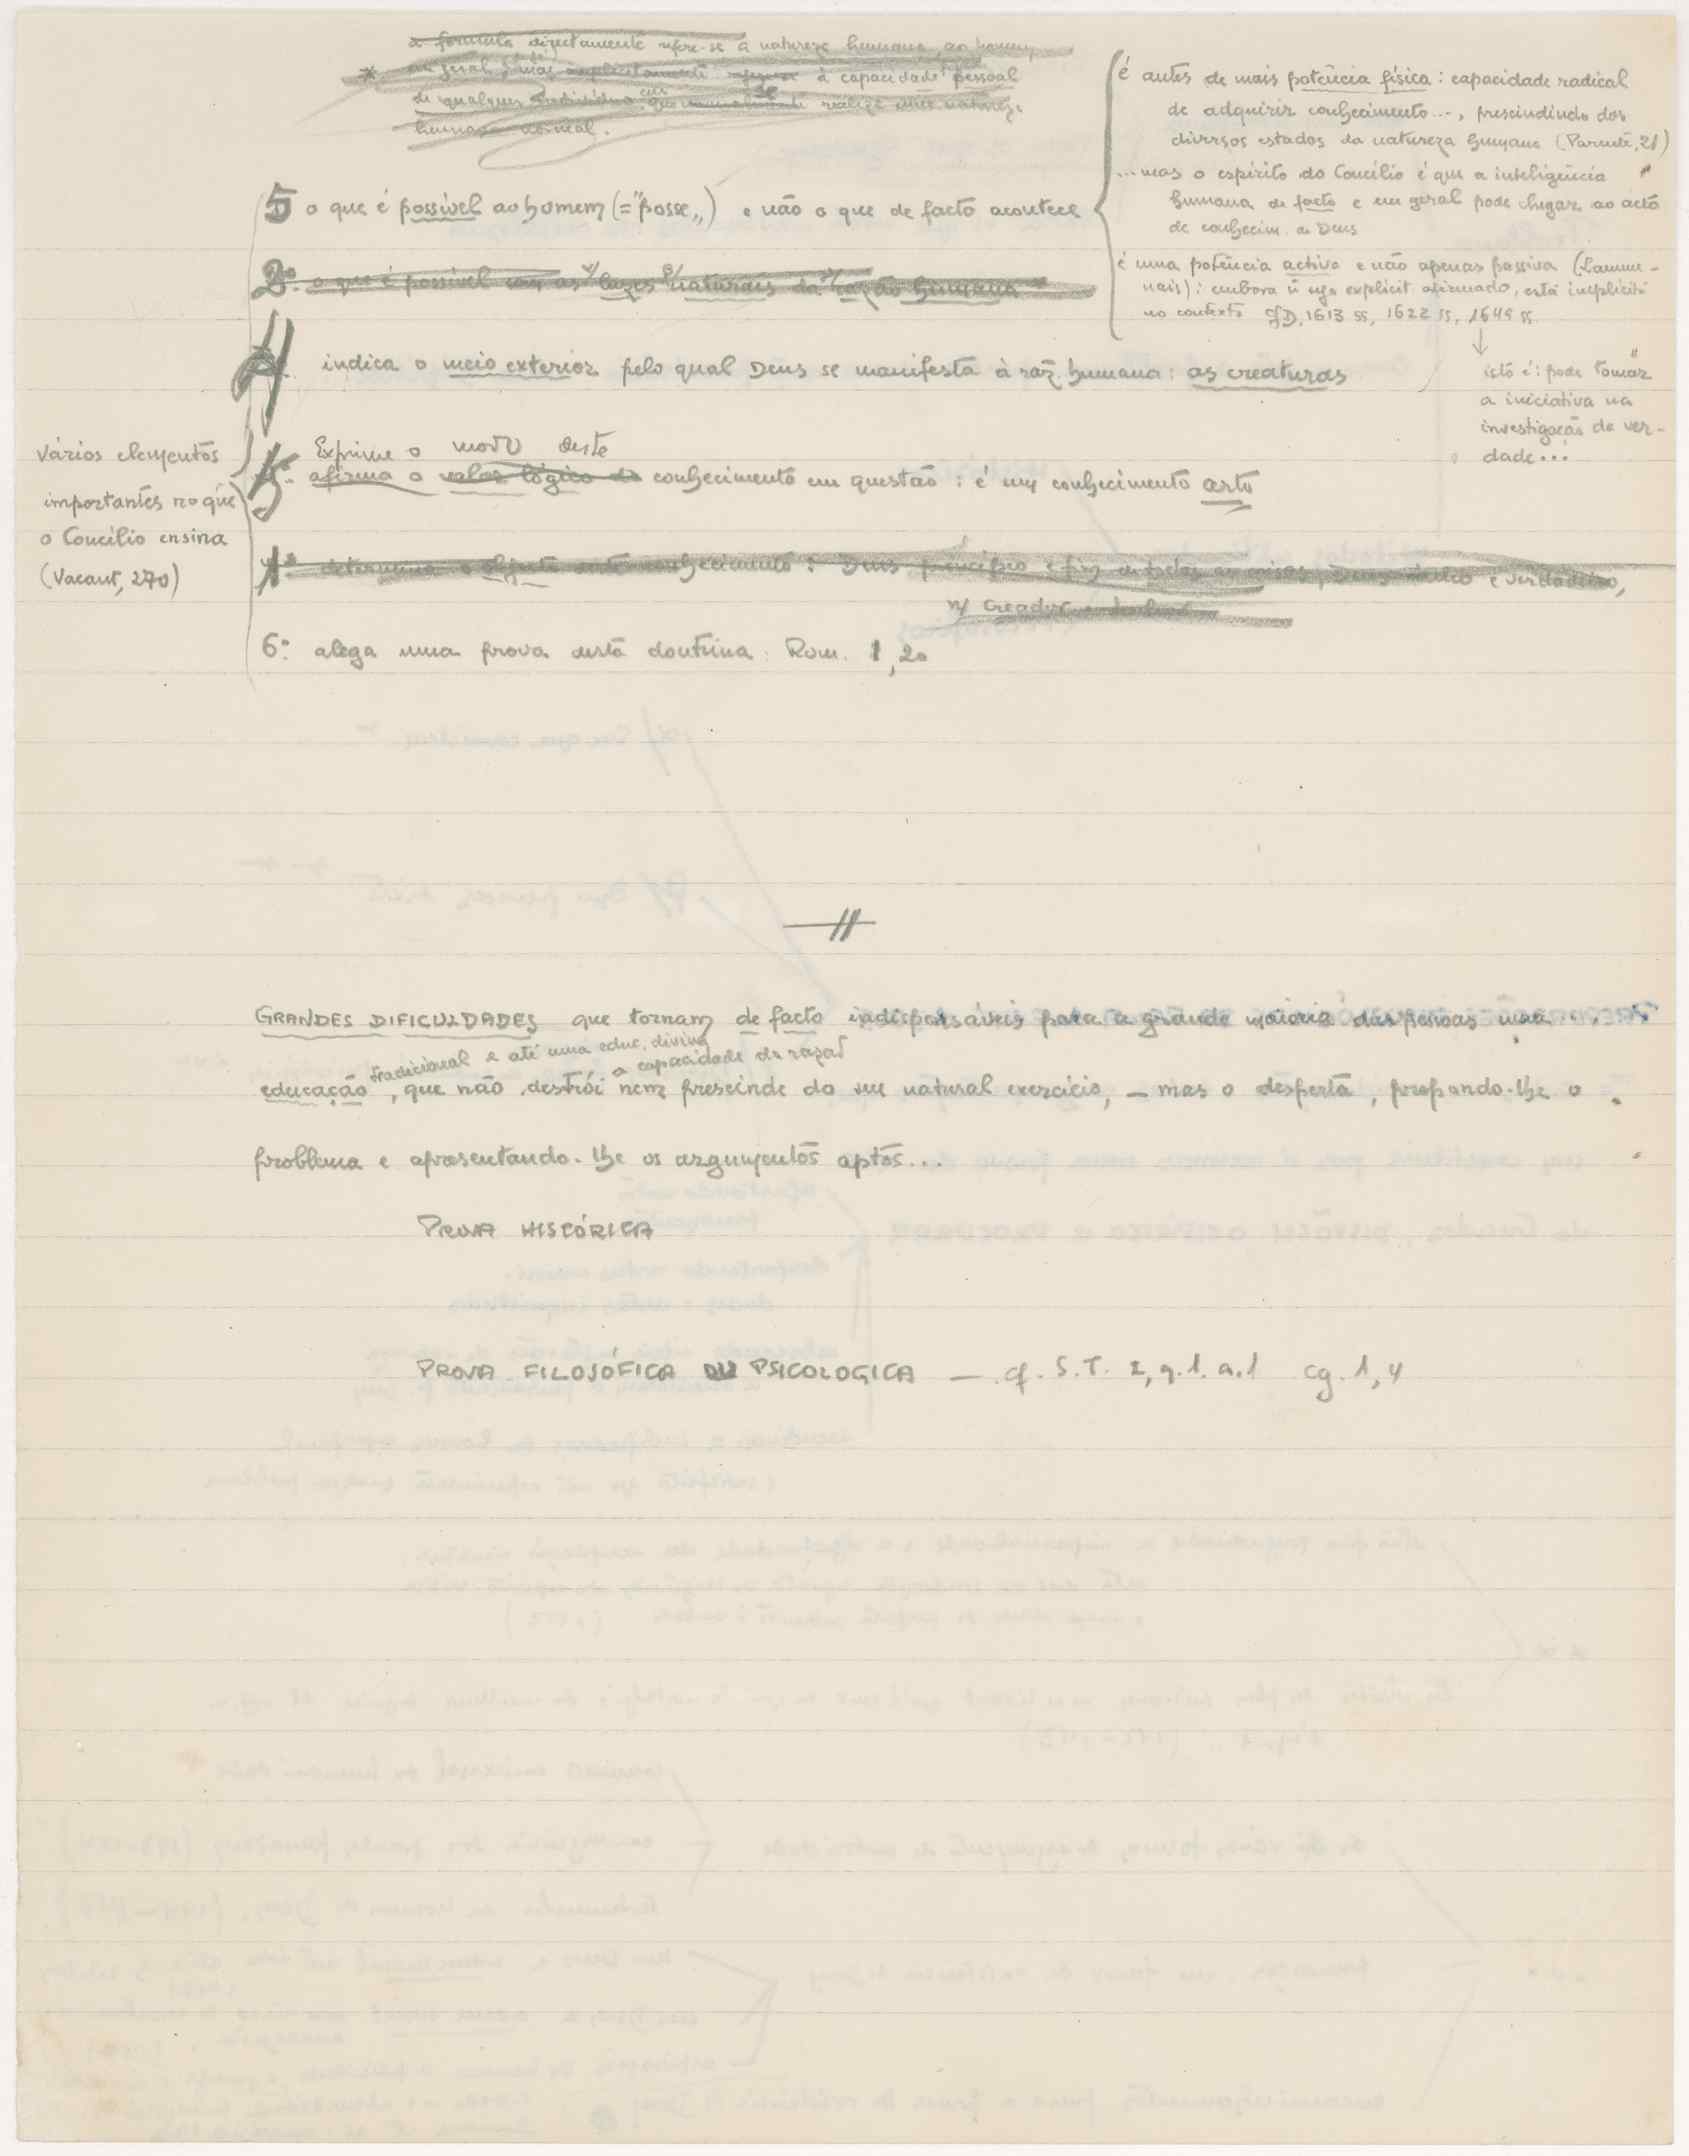 a fórmula directamente refere-se à natureza humana, ao homem
em geral; mas implicitamente à capacidade pessoal
de qualquer indivíduo em que se realize uma natureza
humana normal.
5 o que é possível ao homem (= "posse„) e não o que de facto acontece
é antes de mais potência física: capacidade radical
de adquirir conhecimento..., prescindindo dos
diversos estados da natureza humana (Parente, 21)
...mas o espírito do Concílio é que a inteligência
humana de facto e em geral pode chegar ao acto
de conhecim. de Deus
é uma potência activa e não apenas passiva (Lammenais): embora ñ seja explicit afirmado, está implícito
no contexto cf D, 1613 ss, 1622 ss, 1649 ss
isto é: pode "tomar
a iniciativa na
investigação da ver-
dade...
2º. o que é possível com as luzes naturais da razão humana
4. indica o meio exterior pelo qual Deus se manifesta à raz. humana: as creaturas
Vários elementos
importantes no que
o Concílio ensina
(Vacant, 270)
Exprime o modo deste
5º. afirma o valor lógico do conhecimento em questão: é um conhecimento certo
1º determina o objecto deste conhecimento: Deus, princípio e fim de todas as coisas, Deus único e verdadeiro,
n/ Creador e Senhor
6º. alega uma prova desta doutrina: Rom. 1, 20
GRANDES DIFICULDADES que tornam de facto indispensáveis para a grande maioria das pessoas uma ...
tradicional e até uma educ. divina
a capacidade da razão
educação, que não destrói nem prescinde do seu natural exercício, – mas o desperta, propondo-lhe o
problema e apresentando-lhe os argumentos aptos...
PROVA HISTÓRICA
PROVA FILOSÓFICA OU PSICOLOGICA — cf. S.T. I, q.1. a.1 cg. 1, 4